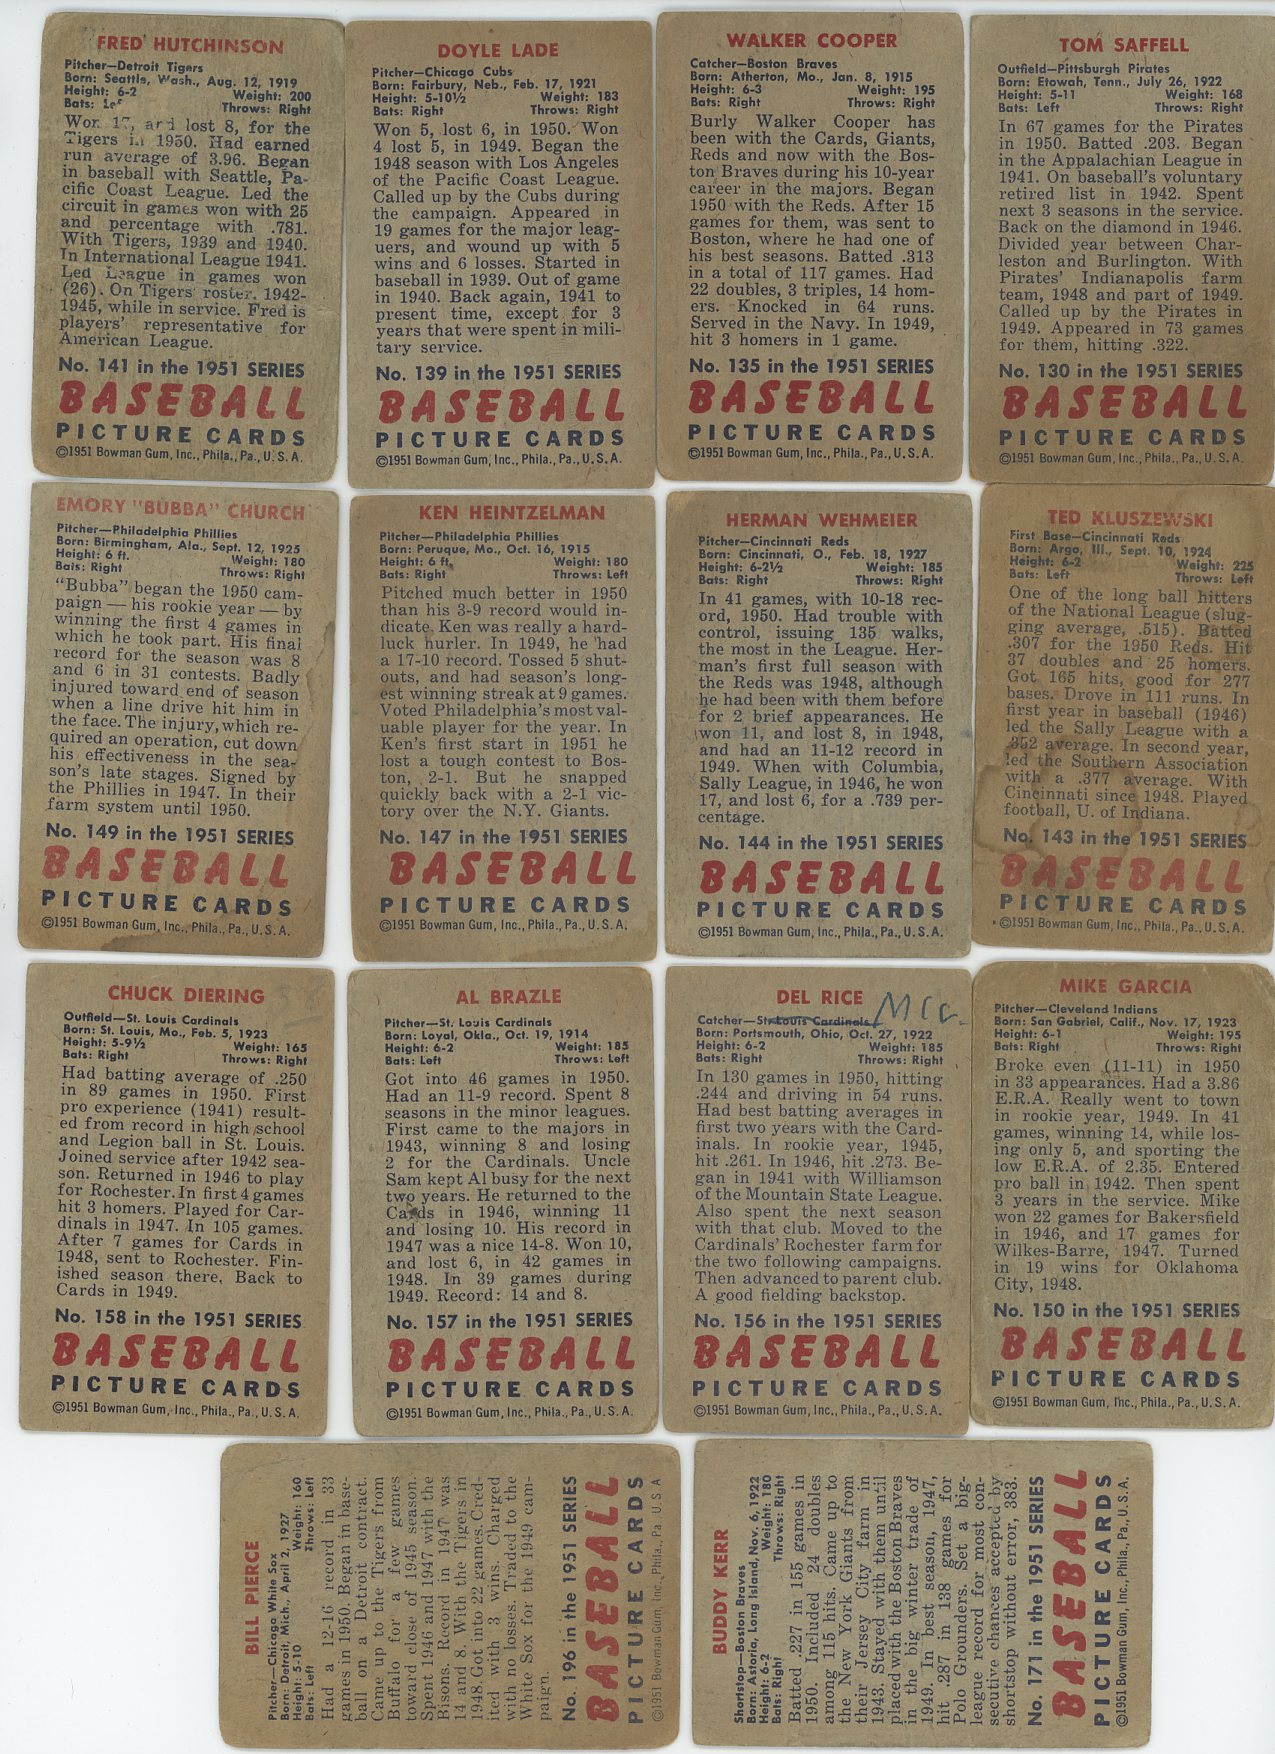 FRED HUTCHINSON
Pitcher—Detroit Tigers
Born: Seattle, Wash., Aug. 12, 1919
Height: 6-2 Weight: 200
Bats: Throws: Right
Won 17, and lost 8, for the
Tigers in 1950. Had earned
run average of 3.96. Began
in baseball with Seattle, Pa-
cific Coast League. Led the
circuit in games won with 25
and percentage with .781.
With Tigers, 1939 and 1940.
In International League 1941.
Led League in games won
(26). On Tigers' roster, 1942-
1945, while in service. Fred is
players' representative for
American League.
No. 141 in the 1951 SERIES
BASEBALL
PICTURE CARDS
©1951 Bowman Gum, Inc., Phila., Pa., U.S.A.
DOYLE LADE
Pitcher—Chicago Cubs
Born: Fairbury, Neb., Feb. 17, 1921
Height: 5-10½ Weight: 183
Bats: Right Throws: Right
Won 5, lost 6, in 1950. Won
4 lost 5, in 1949. Began the
1948 season with Los Angeles
of the Pacific Coast League.
Called up by the Cubs during
the campaign. Appeared in
19 games for the major leag-
uers, and wound up with 5
wins and 6 losses. Started in
baseball in 1939. Out of game
in 1940. Back again, 1941 to
present time, except for 3
years that were spent in mili-
tary service.
No. 139 in the 1951 SERIES
BASEBALL
PICTURE CARDS
©1951 Bowman Gum, Inc., Phila., Pa., U.S.A.
WALKER COOPER
Catcher—Boston Braves
Born: Atherton, Mo., Jan. 8, 1915
Height: 6-3 Weight: 195
Bats: Right Throws: Right
Burly Walker Cooper has
been with the Cards, Giants,
Reds and now with the Bos-
ton Braves during his 10-year
career in the majors. Began
1950 with the Reds. After 15
games for them, was sent to
Boston, where he had one of
his best seasons. Batted .313
in a total of 117 games. Had
22 doubles, 3 triples, 14 hom-
ers. Knocked in 64 runs.
Served in the Navy. In 1949,
hit 3 homers in 1 game.
No. 135 in the 1951 SERIES
BASEBALL
PICTURE CARDS
©1951 Bowman Gum, Inc., Phila., Pa., U.S.A.
TOM SAFFELL
Outfield—Pittsburgh Pirates
Born: Etowah, Tenn., July 26, 1922
Height: 5-11 Weight: 168
Bats: Left Throws: Right
In 67 games for the Pirates
in 1950. Batted .203. Began
in the Appalachian League in
1941. On baseball's voluntary
retired list in 1942. Spent
next 3 seasons in the service.
Back on the diamond in 1946.
Divided year between Char-
leston and Burlington. With
Pirates' Indianapolis farm
team, 1948 and part of 1949.
Called up by the Pirates in
1949. Appeared in 73 games
for them, hitting .322.
No. 130 in the 1951 SERIES
BASEBALL
PICTURE CARDS
©1951 Bowman Gum, Inc., Phila., Pa., U.S.A.
EMORY "BUBBA" CHURCH
Pitcher—Philadelphia Phillies
Born: Birmingham, Ala., Sept. 12, 1925
Height: 6 ft. Weight: 180
Bats: Right Throws: Right
"Bubba" began the 1950 cam-
paign — his rookie year — by
winning the first 4 games in
which he took part. His final
record for the season was 8
and 6 in 31 contests. Badly
injured toward end of season
when a line drive hit him in
the face. The injury, which re-
quired an operation, cut down
his effectiveness in the sea-
son's late stages. Signed by
the Phillies in 1947. In their
farm system until 1950.
No. 149 in the 1951 SERIES
BASEBALL
PICTURE CARDS
©1951 Bowman Gum, Inc., Phila., Pa., U.S.A.
KEN HEINTZELMAN
Pitcher—Philadelphia Phillies
Born: Peruque, Mo., Oct. 16, 1915
Height: 6 ft. Weight: 180
Bats: Right Throws: Left
Pitched much better in 1950
than his 3-9 record would in-
dicate. Ken was really a hard-
luck hurler. In 1949, he had
a 17-10 record. Tossed 5 shut-
outs, and had season's long-
est winning streak at 9 games.
Voted Philadelphia's most val-
uable player for the year. In
Ken's first start in 1951 he
lost a tough contest to Bos-
ton, 2-1. But he snapped
quickly back with a 2-1 vic-
tory over the N.Y. Giants.
No. 147 in the 1951 SERIES
BASEBALL
PICTURE CARDS
©1951 Bowman Gum, Inc., Phila., Pa., U.S.A.
HERMAN WEHMEIER
Pitcher—Cincinnati Reds
Born: Cincinnati, O., Feb. 18, 1927
Height: 6-2½ Weight: 185
Bats: Right Throws: Right
In 41 games, with 10-18 rec-
ord, 1950. Had trouble with
control, issuing 135 walks,
the most in the League. Her-
man's first full season with
the Reds was 1948, although
he had been with them before
for 2 brief appearances. He
won 11, and lost 8, in 1948,
and had an 11-12 record in
1949. When with Columbia,
Sally League, in 1946, he won
17, and lost 6, for a .739 per-
centage.
No. 144 in the 1951 SERIES
BASEBALL
PICTURE CARDS
©1951 Bowman Gum, Inc., Phila., Pa., U.S.A.
TED KLUSZEWSKI
First Base—Cincinnati Reds
Born: Argo, Ill., Sept. 10, 1924
Height: 6-2 Weight: 225
Bats: Left Throws: Left
One of the long ball hitters
of the National League (slug-
ging average, .515). Batted
.307 for the 1950 Reds. Hit
37 doubles and 25 homers.
Got 165 hits, good for 277
bases. Drove in 111 runs. In
first year in baseball (1946)
led the Sally League with a
.352 average. In second year,
led the Southern Association
with a .377 average. With
Cincinnati since 1948. Played
football, U. of Indiana.
No. 143 in the 1951 SERIES
BASEBALL
PICTURE CARDS
©1951 Bowman Gum, Inc., Phila., Pa., U.S.A.
CHUCK DIERING
Outfield—St. Louis Cardinals
Born: St. Louis, Mo., Feb. 5, 1923
Height: 5-9½ Weight: 165
Bats: Right Throws: Right
Had batting average of .250
in 89 games in 1950. First
pro experience (1941) result-
ed from record in high school
and Legion ball in St. Louis.
Joined service after 1942 sea-
son. Returned in 1946 to play
for Rochester. In first 4 games
hit 3 homers. Played for Car-
dinals in 1947. In 105 games.
After 7 games for Cards in
1948, sent to Rochester. Fin-
ished season there. Back to
Cards in 1949.
No. 158 in the 1951 SERIES
BASEBALL
PICTURE CARDS
©1951 Bowman Gum, Inc., Phila., Pa., U.S.A.
AL BRAZLE
Pitcher—St. Louis Cardinals
Born: Loyal, Okla., Oct. 19, 1914
Height: 6-2 Weight: 185
Bats: Left Throws: Left
Got into 46 games in 1950.
Had an 11-9 record. Spent 8
seasons in the minor leagues.
First came to the majors in
1943, winning 8 and losing
2 for the Cardinals. Uncle
Sam kept Al busy for the next
two years. He returned to the
Cards in 1946, winning 11
and losing 10. His record in
1947 was a nice 14-8. Won 10,
and lost 6, in 42 games in
1948. In 39 games during
1949. Record: 14 and 8.
No. 157 in the 1951 SERIES
BASEBALL
PICTURE CARDS
©1951 Bowman Gum, Inc., Phila., Pa., U.S.A.
DEL RICE
Catcher—St. Louis Cardinals
Born: Portsmouth, Ohio, Oct. 27, 1922
Height: 6-2 Weight: 185
Bats: Right Throws: Right
In 130 games in 1950, hitting
.244 and driving in 54 runs.
Had best batting averages in
first two years with the Card-
inals. In rookie year, 1945,
hit .261. In 1946, hit .273. Be-
gan in 1941 with Williamson
of the Mountain State League.
Also spent the next season
with that club. Moved to the
Cardinals' Rochester farm for
the two following campaigns.
Then advanced to parent club.
A good fielding backstop.
No. 156 in the 1951 SERIES
BASEBALL
PICTURE CARDS
©1951 Bowman Gum, Inc., Phila., Pa., U.S.A.
MIKE GARCIA
Pitcher—Cleveland Indians
Born: San Gabriel, Calif., Nov. 17, 1923
Height: 6-1 Weight: 195
Bats: Right Throws: Right
Broke even (11-11) in 1950
in 33 appearances. Had a 3.86
E.R.A. Really went to town
in rookie year, 1949. In 41
games, winning 14, while los-
ing only 5, and sporting the
low E.R.A. of 2.35. Entered
pro ball in 1942. Then spent
3 years in the service. Mike
won 22 games for Bakersfield
in 1946, and 17 games for
Wilkes-Barre, 1947. Turned
in 19 wins for Oklahoma
City, 1948.
No. 150 in the 1951 SERIES
BASEBALL
PICTURE CARDS
©1951 Bowman Gum, Inc., Phila., Pa., U.S.A.
BILL PIERCE
Pitcher—Chicago White Sox
Born: Detroit, Mich., April 2, 1927
Height: 5-10 Weight: 160
Bats: Left Throws: Left
Had a 12-16 record in 33
games in 1950. Began in base-
ball on a Detroit contract.
Came up to the Tigers from
Buffalo for a few games
toward close of 1945 season.
Spent 1946 and 1947 with the
Bisons. Record in 1947 was
14 and 8. With the Tigers in
1948. Got into 22 games. Cred-
ited with 3 wins. Charged
with no losses. Traded to the
White Sox for the 1949 cam-
paign.
No. 196 in the 1951 SERIES
BASEBALL
PICTURE CARDS
©1951 Bowman Gum, Inc., Phila., Pa., U S A
BUDDY KERR
Shortstop—Boston Braves
Born: Astoria, Long Island, Nov. 6, 1922
Height: 6-2 Weight: 180
Bats: Right Throws: Right
Batted .227 in 155 games in
1950. Included 24 doubles
among 115 hits. Came up to
the New York Giants from
their Jersey City farm in
1943. Stayed with them until
placed with the Boston Braves
in the big winter trade of
1949. In best season, 1947,
hit .287 in 138 games for
Polo Grounders. Set a big-
league record for most con-
secutive chances accepted by
shortstop without error, 383.
No. 171 in the 1951 SERIES
BASEBALL
PICTURE CARDS
©1951 Bowman Gum, Inc., Phila., Pa., U.S.A.